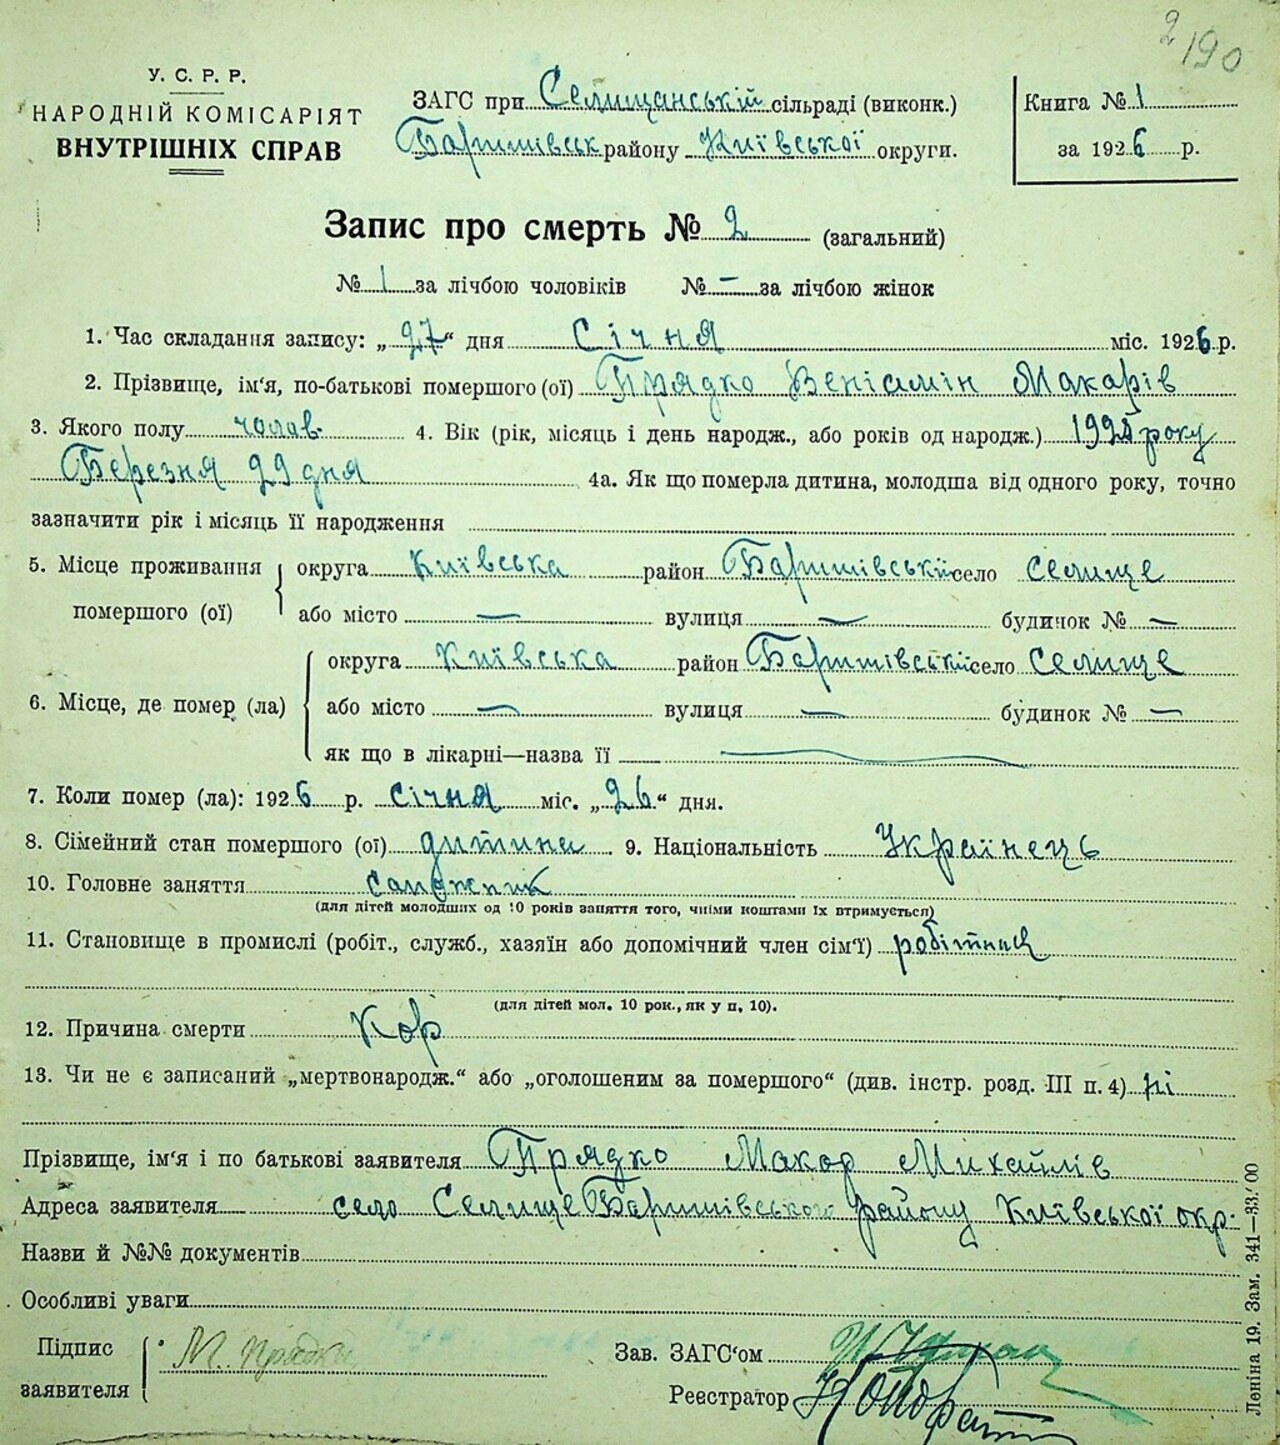 2
190
У. С. Р. Р.
НАРОДНІЙ КОМІСАРІЯТ
ВНУТРІШНІХ СПРАВ
ЗАГС при Селищанській сільраді (виконк.)
Баришівськ району Київської округи.
Книга № 1
за 1926 р.
Запис про смерть № 2 (загальний)
№ 1 за лічбою чоловіків № — за лічбою жінок
1. Час складання запису: „27“ дня Січня міс. 1926 р.
2. Прізвище, ім'я, по-батькові помершого (ої) Прядко Веніамін Макарів
3. Якого полу чолов. 4. Вік (рік, місяць і день народж., або років од народж.) 1925 року
Березня 29 дня 4а. Як що померла дитина, молодша від одного року, точно
зазначити рік і місяць її народження
5. Місце проживання помершого (ої) округа Київська район Баришівський село Селище
або місто — вулиця — будинок № —
6. Місце, де помер (ла) округа Київська район Баришівський село Селище
або місто — вулиця — будинок № —
як що в лікарні—назва її —
7. Коли помер (ла): 1926 р. Січня міс. „26“ дня.
8. Сімейний стан помершого (ої) дитина 9. Національність Українець
10. Головне заняття
(для дітей молодших од 10 років заняття того, чиїми коштами їх втримується)
11. Становище в промислі (робіт., служб., хазяїн або допомічний член сім'ї) робітник
(для дітей мол. 10 рок., як у п. 10).
12. Причина смерти Кор
13. Чи не є записаний „мертвонародж.“ або „оголошеним за помершого“ (див. інстр. розд. III п. 4) ні
Прізвище, ім'я і по батькові заявителя Прядко Макар Михайлів
Адреса заявителя село Селище Баришівського району Київської окр.
Назви й №№ документів
Особливі уваги
Підпис заявителя М. Прядко
Зав. ЗАГС'ом
Реєстратор
Леніна 19. Зам. 341—33.